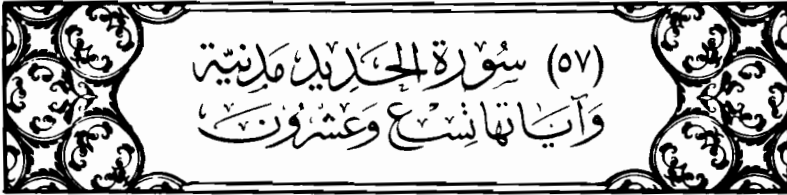 (٥٧) سُوْرَة الحَدِيد مَدَنيَّة
وَآيَاتهَا تِسْع وَعشْرُونَ